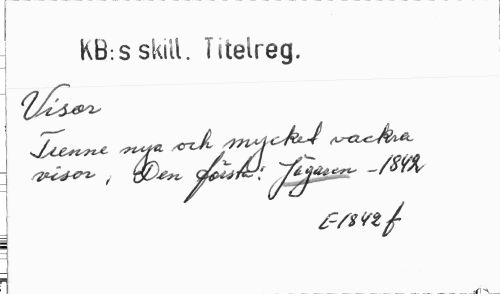 KB:s skill. Titelreg.
Visor
Trenne nya och mycket vackra
visor, Den första: Jägaren -1842
E-1842 f